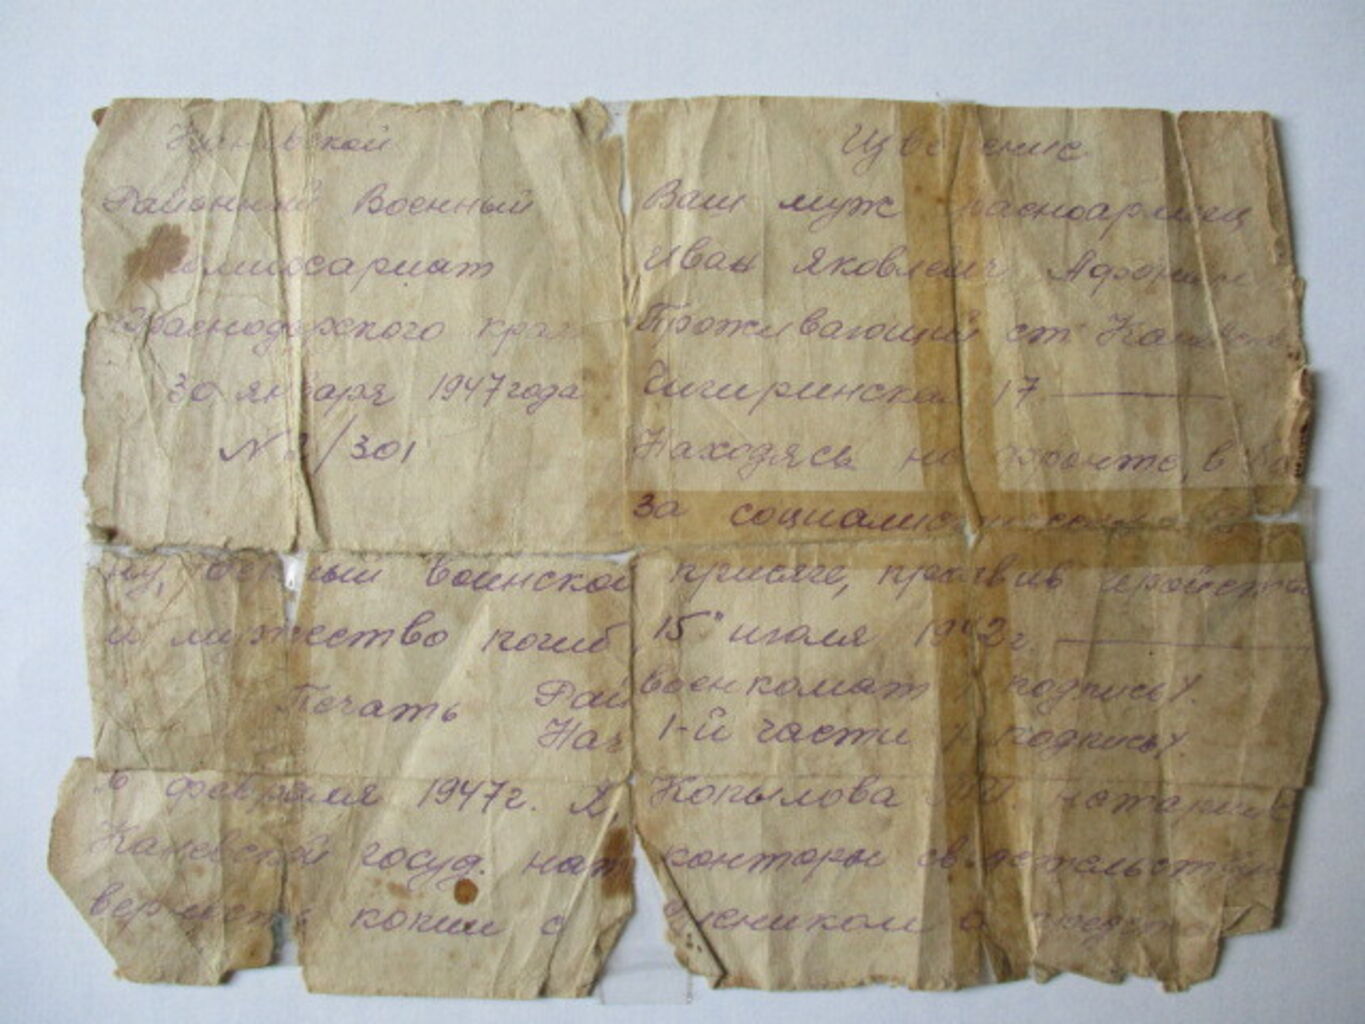 Каневской
Районный Военный
комиссариат
Краснодарского края
30 января 1947 года
N 2/301
Извещение
Ваш муж красноармеец
Иван Яковлевич Афонин
Проживающий ст. Каневская
Чигиринская 17
Находясь на фронте, в
за социалистическую
ну, верный воинской присяге, проявив геройство
и мужество погиб, 15" июля 1942 г.
Печать Рай военкомат / подпись /.
Нач 1-й части / подпись /.
февраля 1947 г. Я Копылова нотариус
Каневской госуд. нот конторы свидетельствую
верность копии с